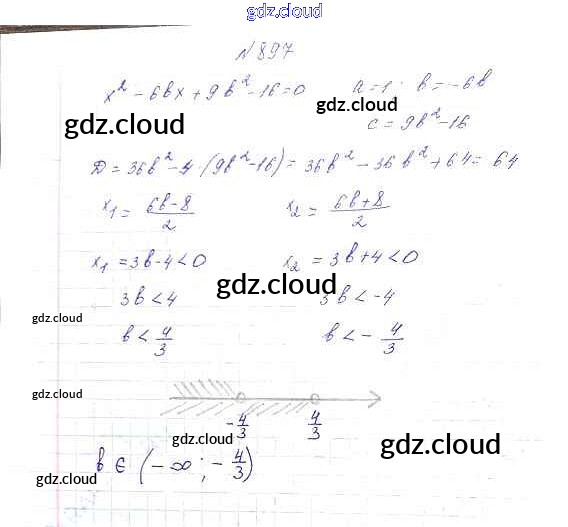 gdz.cloud
№ 897
x² - 6bx + 9b² - 16 = 0 a = 1 · b = -6b
gdz.cloud gdz.cloud
c = 9b² - 16
D = 36b² - 4 · (9b² - 16) = 36b² - 36b² + 64 = 64
x₁ = (6b - 8)/2 x₂ = (6b + 8)/2
x₁ = 3b - 4 < 0 x₂ = 3b + 4 < 0
gdz.cloud
3b < 4 3b < -4
gdz.cloud gdz.cloud
b < 4/3 b < - 4/3
gdz.cloud
-4/3 4/3
gdz.cloud gdz.cloud
b ∈ (-∞; -4/3)
gdz.cloud